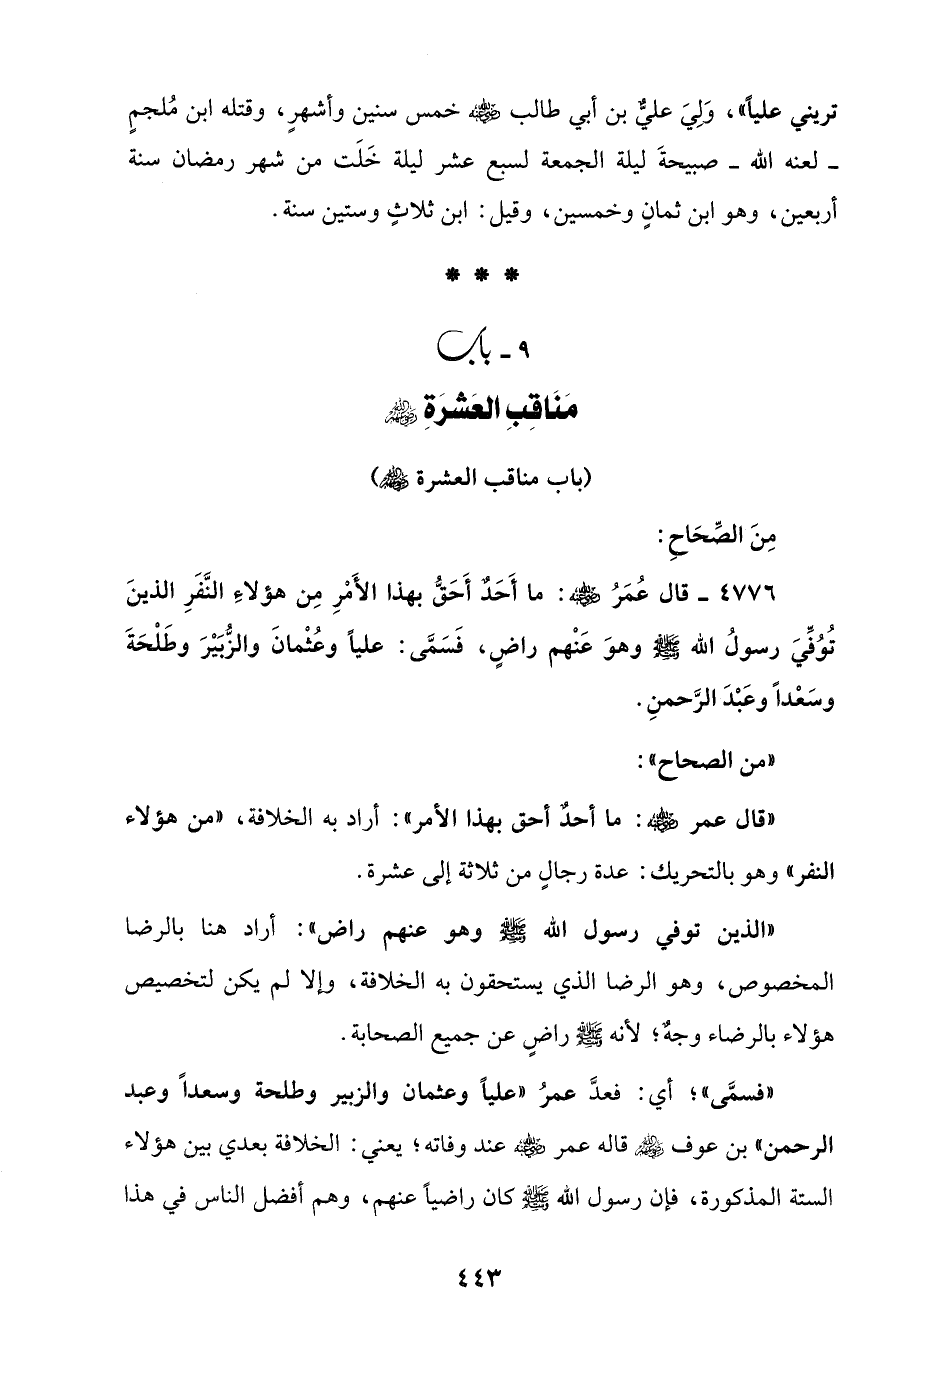 تريني علياً»، وَلِيَ عليٌّ بن أبي طالب ﷺ خمس سنين وأشهرٍ، وقتله ابن مُلجمٍ
ـ لعنه الله ـ صبيحةَ ليلة الجمعة لسبع عشر ليلة خَلَت من شهر رمضان سنة
أربعين، وهو ابن ثمانٍ وخمسين، وقيل: ابن ثلاثٍ وستين سنة.
* * *
٩ ـ باب
مَنَاقِبِ العَشرَةِ رضي الله عنهم
(باب مناقب العشرة رضي الله عنهم)
مِنَ الصِّحَاحِ:
٤٧٧٦ ـ قال عُمَرُ رضي الله عنه: ما أَحَدٌ أَحَقُّ بهذا الأَمْرِ مِن هؤلاءِ النَّفَرِ الذينَ
تُوُفِّيَ رسولُ الله ﷺ وهوَ عَنْهم راضٍ، فَسَمَّى: علياً وعُثْمانَ والزُّبَيْرَ وطَلْحَةَ
وسَعْداً وعَبْدَ الرَّحمنِ.
«من الصحاح»:
«قال عمر رضي الله عنه: ما أحدٌ أحق بهذا الأمر»: أراد به الخلافة، «من هؤلاء
النفر» وهو بالتحريك: عدة رجالٍ من ثلاثة إلى عشرة.
«الذين توفي رسول الله ﷺ وهو عنهم راض»: أراد هنا بالرضا
المخصوص، وهو الرضا الذي يستحقون به الخلافة، وإلا لم يكن لتخصيص
هؤلاء بالرضاء وجهٌ؛ لأنه ﷺ راضٍ عن جميع الصحابة.
«فسمَّى»؛ أي: فعدَّ عمرُ «علياً وعثمان والزبير وطلحة وسعداً وعبد
الرحمن» بن عوف رضي الله عنهم قاله عمر رضي الله عنه عند وفاته؛ يعني: الخلافة بعدي بين هؤلاء
الستة المذكورة، فإن رسول الله ﷺ كان راضياً عنهم، وهم أفضل الناس في هذا
٤٤٣